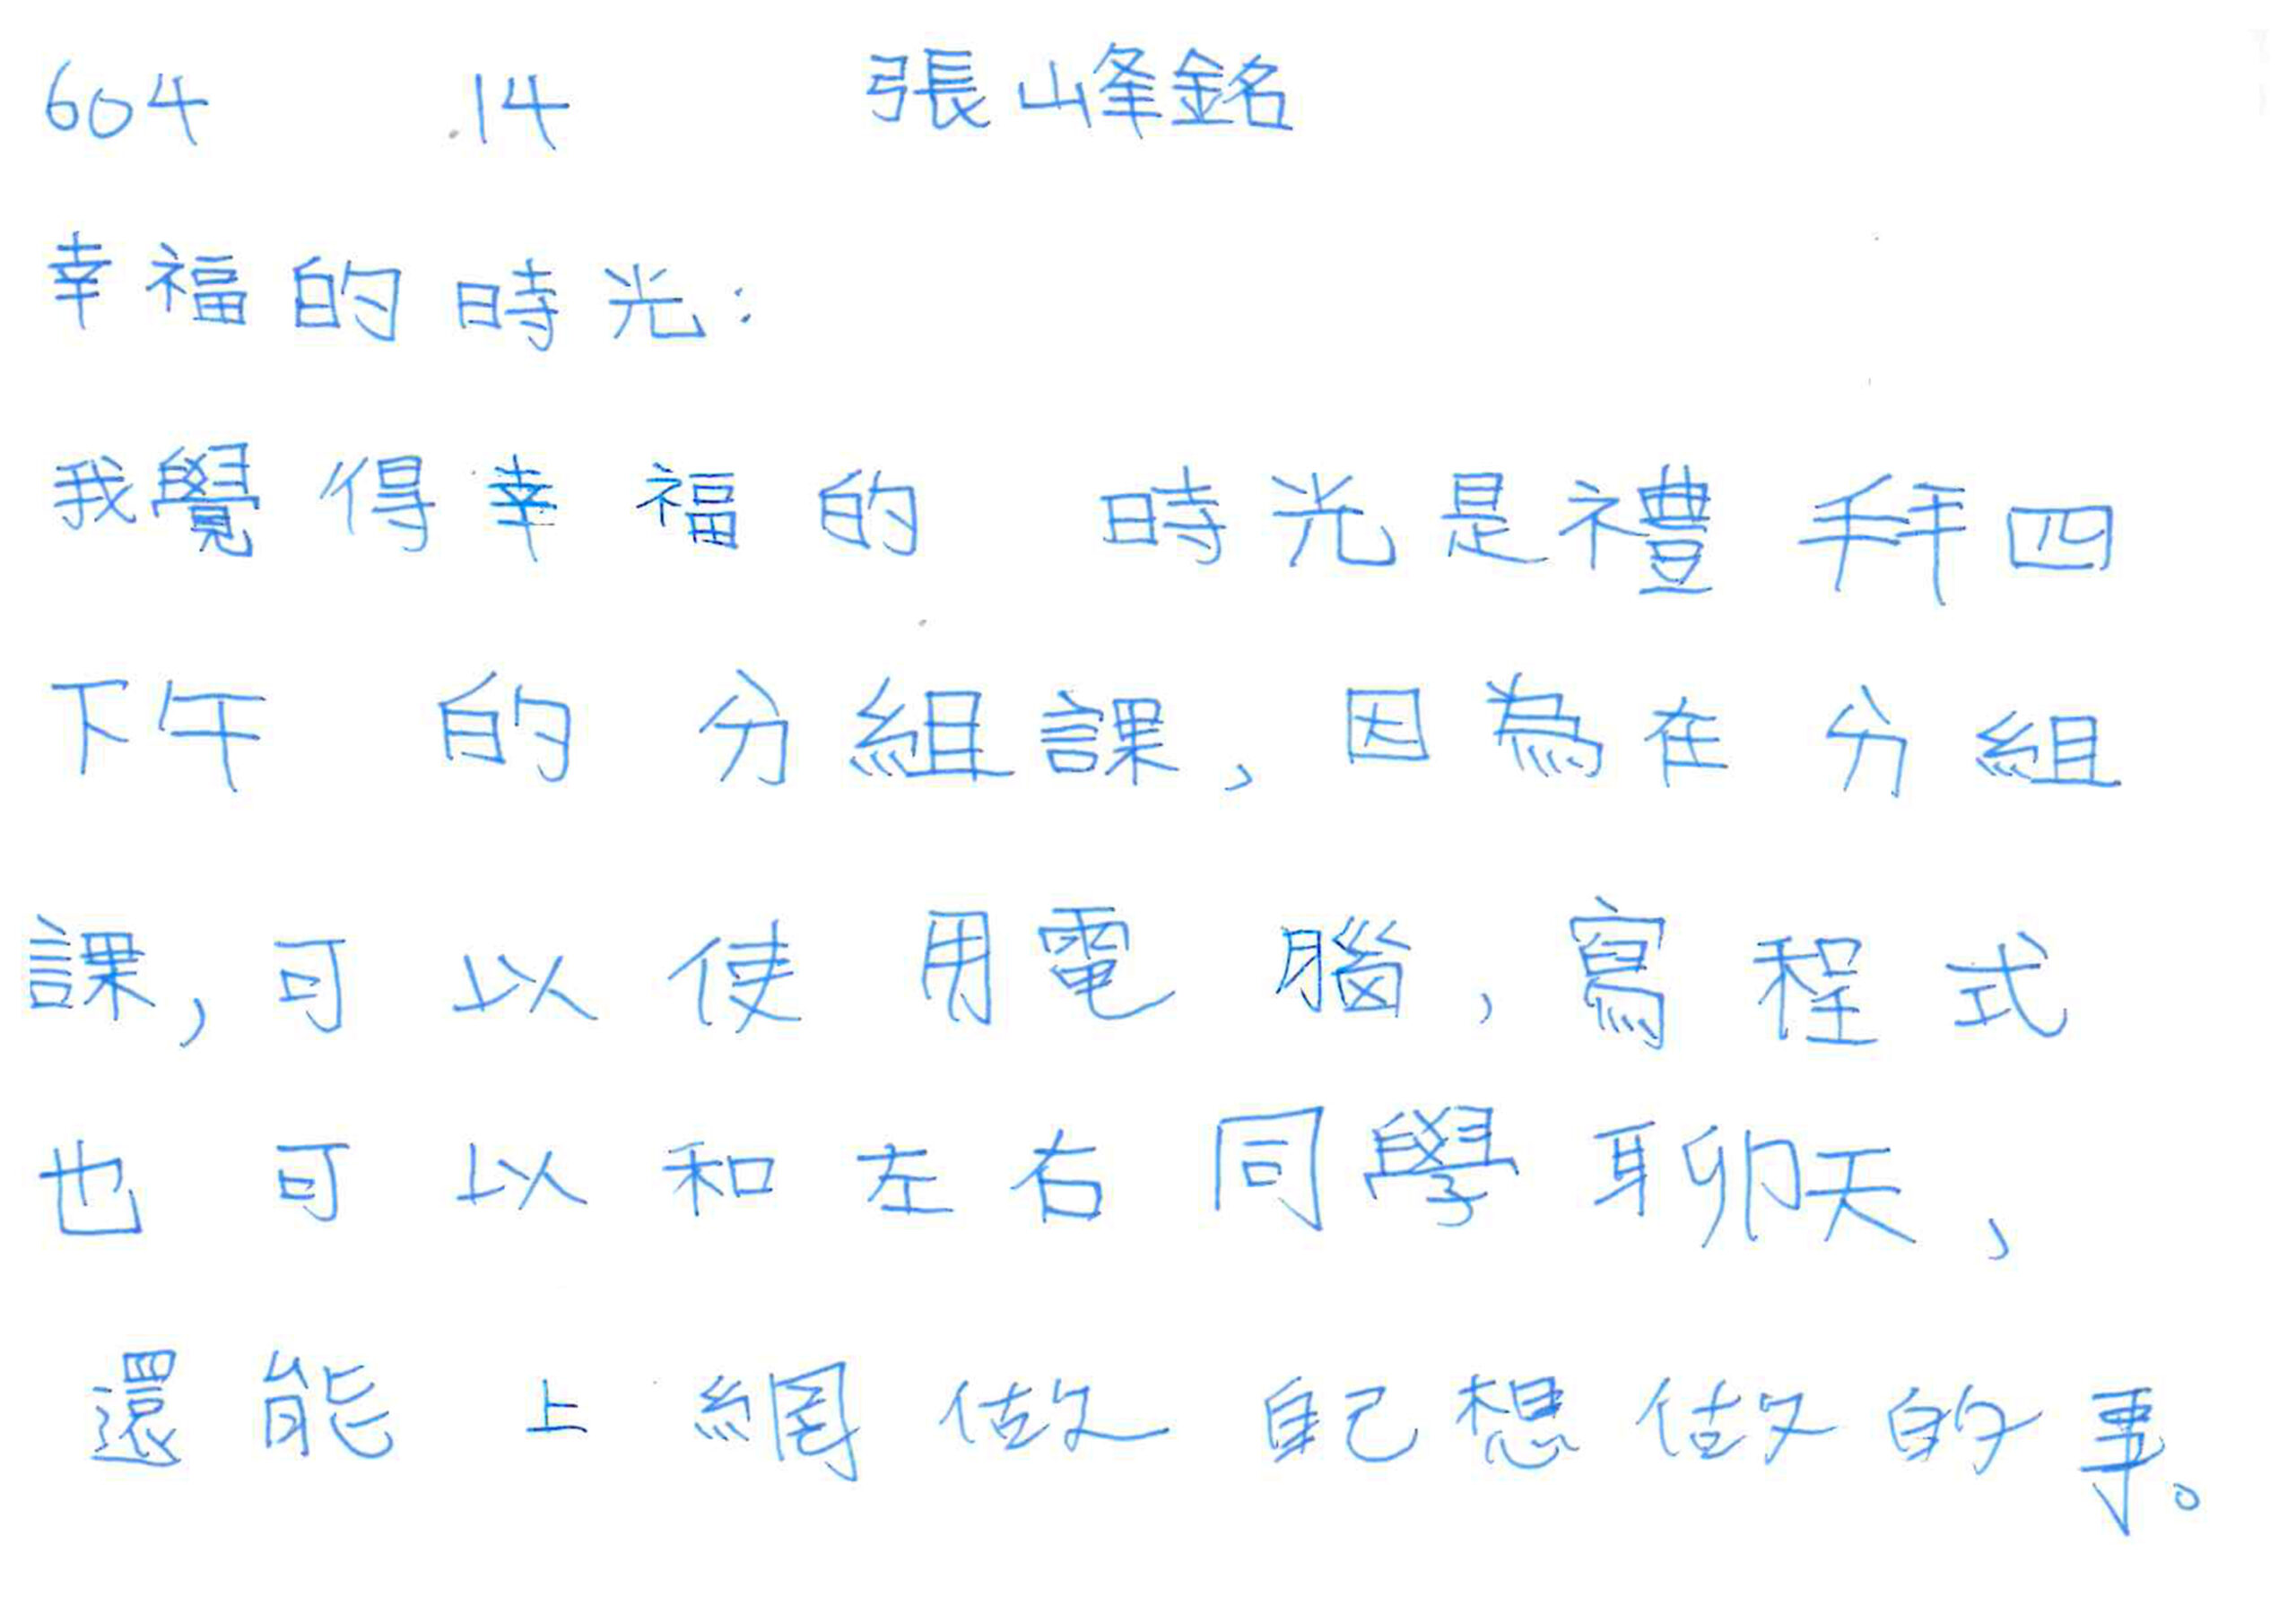 604 14 張峰銘
幸福的時光:
我覺得幸福的 時光是禮拜四
下午 的分組課,因為在分組
課,可以使用電腦,寫程式
也可以和左右同學聊天,
還能上網做自己想做的事。